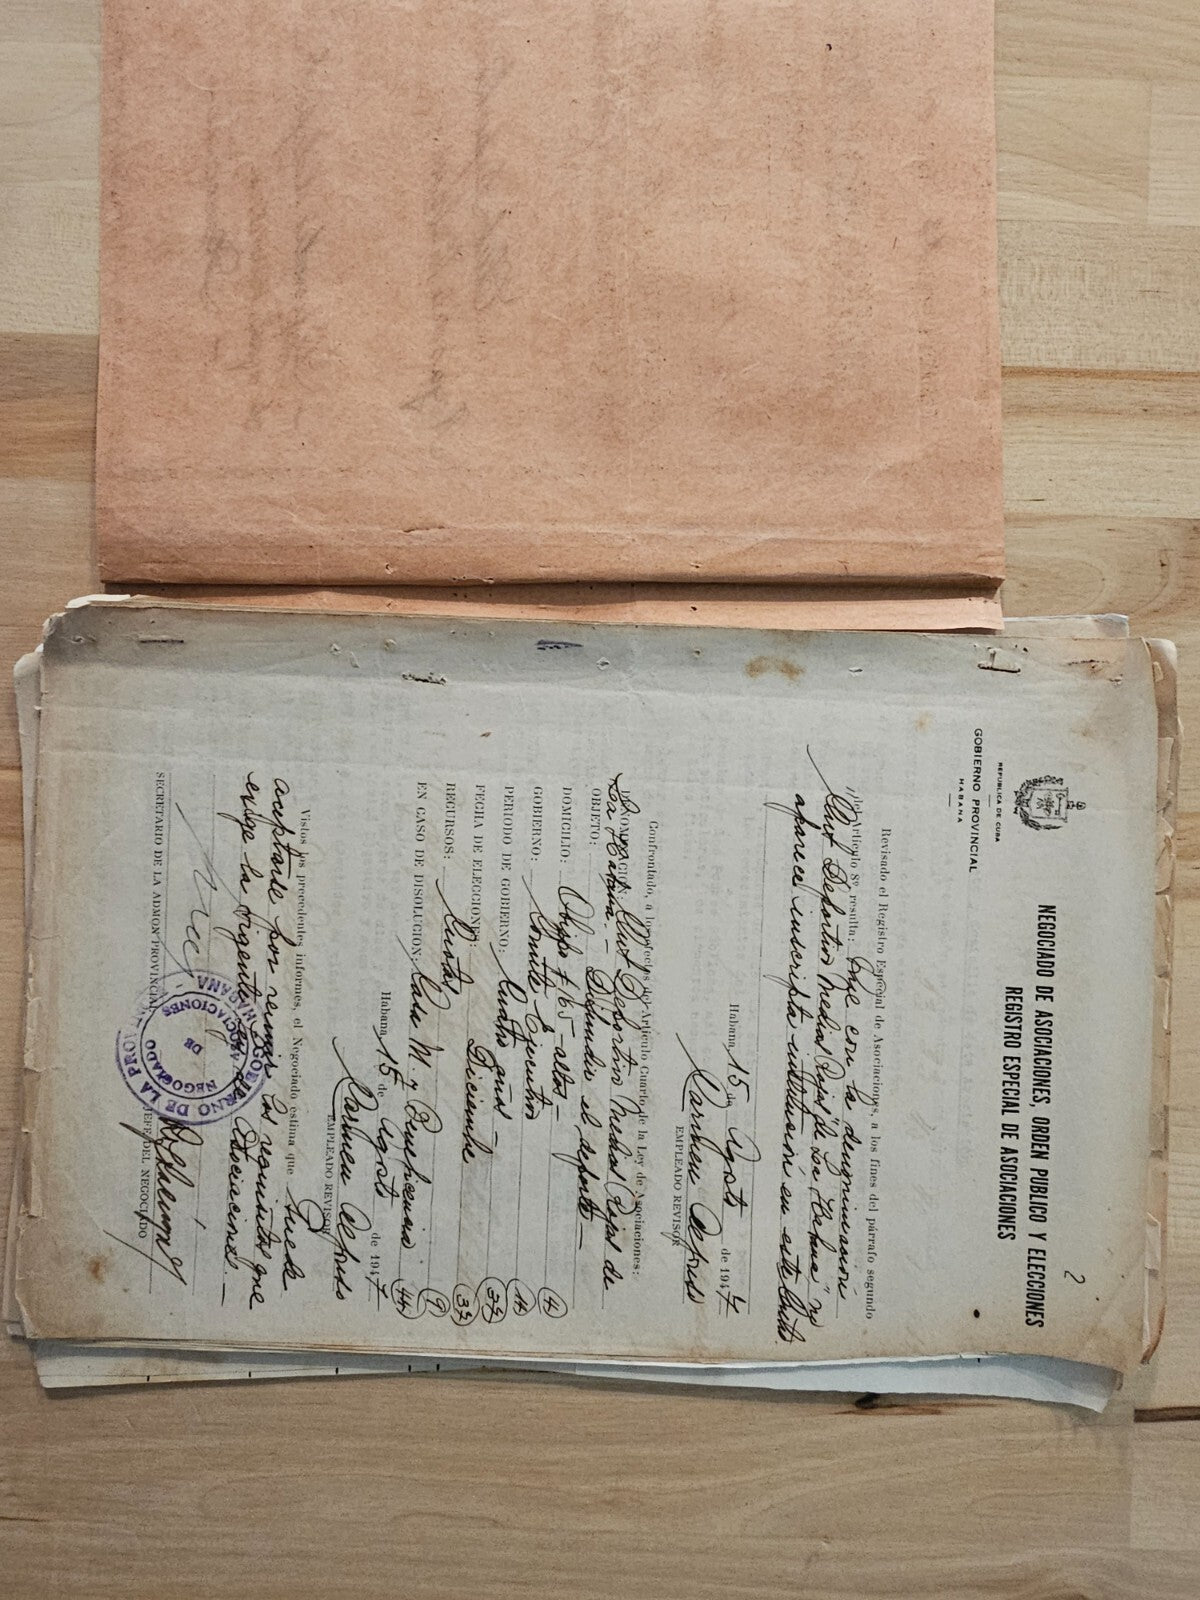 2
NEGOCIADO DE ASOCIACIONES, ORDEN PUBLICO Y ELECCIONES
REGISTRO ESPECIAL DE ASOCIACIONES
REPUBLICA DE CUBA
GOBIERNO PROVINCIAL
HABANA
Revisado el Registro Especial de Asociaciones, a los fines del párrafo segundo
del Artículo 8º resulta: Que con la denominación
"Club Deportivo Medias Rojas de La Habana" no
aparece inscripta institución en este
Habana, 15 de Agosto de 1947
Carmen
EMPLEADO REVISOR
Confrontado, a los efectos del Artículo Cuarto de la Ley de Asociaciones:
DENOMINACION: Club Deportivo Medias Rojas de
La Habana.-
OBJETO: Difundir el deporte-
DOMICILIO: Obispo #165-altos- 4
GOBIERNO: Comité Ejecutivo 14
PERIODO DE GOBIERNO: Cuatro años-
FECHA DE ELECCIONES: Diciembre
RECURSOS: Cuotas 9
EN CASO DE DISOLUCION: Casa M. y Beneficencia. 44
Habana, 15 de Agosto de 1947
Carmen
EMPLEADO REVISOR
Vistos los precedentes informes, el Negociado estima que Puede
aceptarse por reunir los requisitos que
exige la vigente Ley de Asociaciones.-
SECRETARIO DE LA ADMON PROVINCIAL
JEFE DEL NEGOCIADO
GOBIERNO DE LA PROV HABANA
NEGOCIADO
DE
ASOCIACIONES